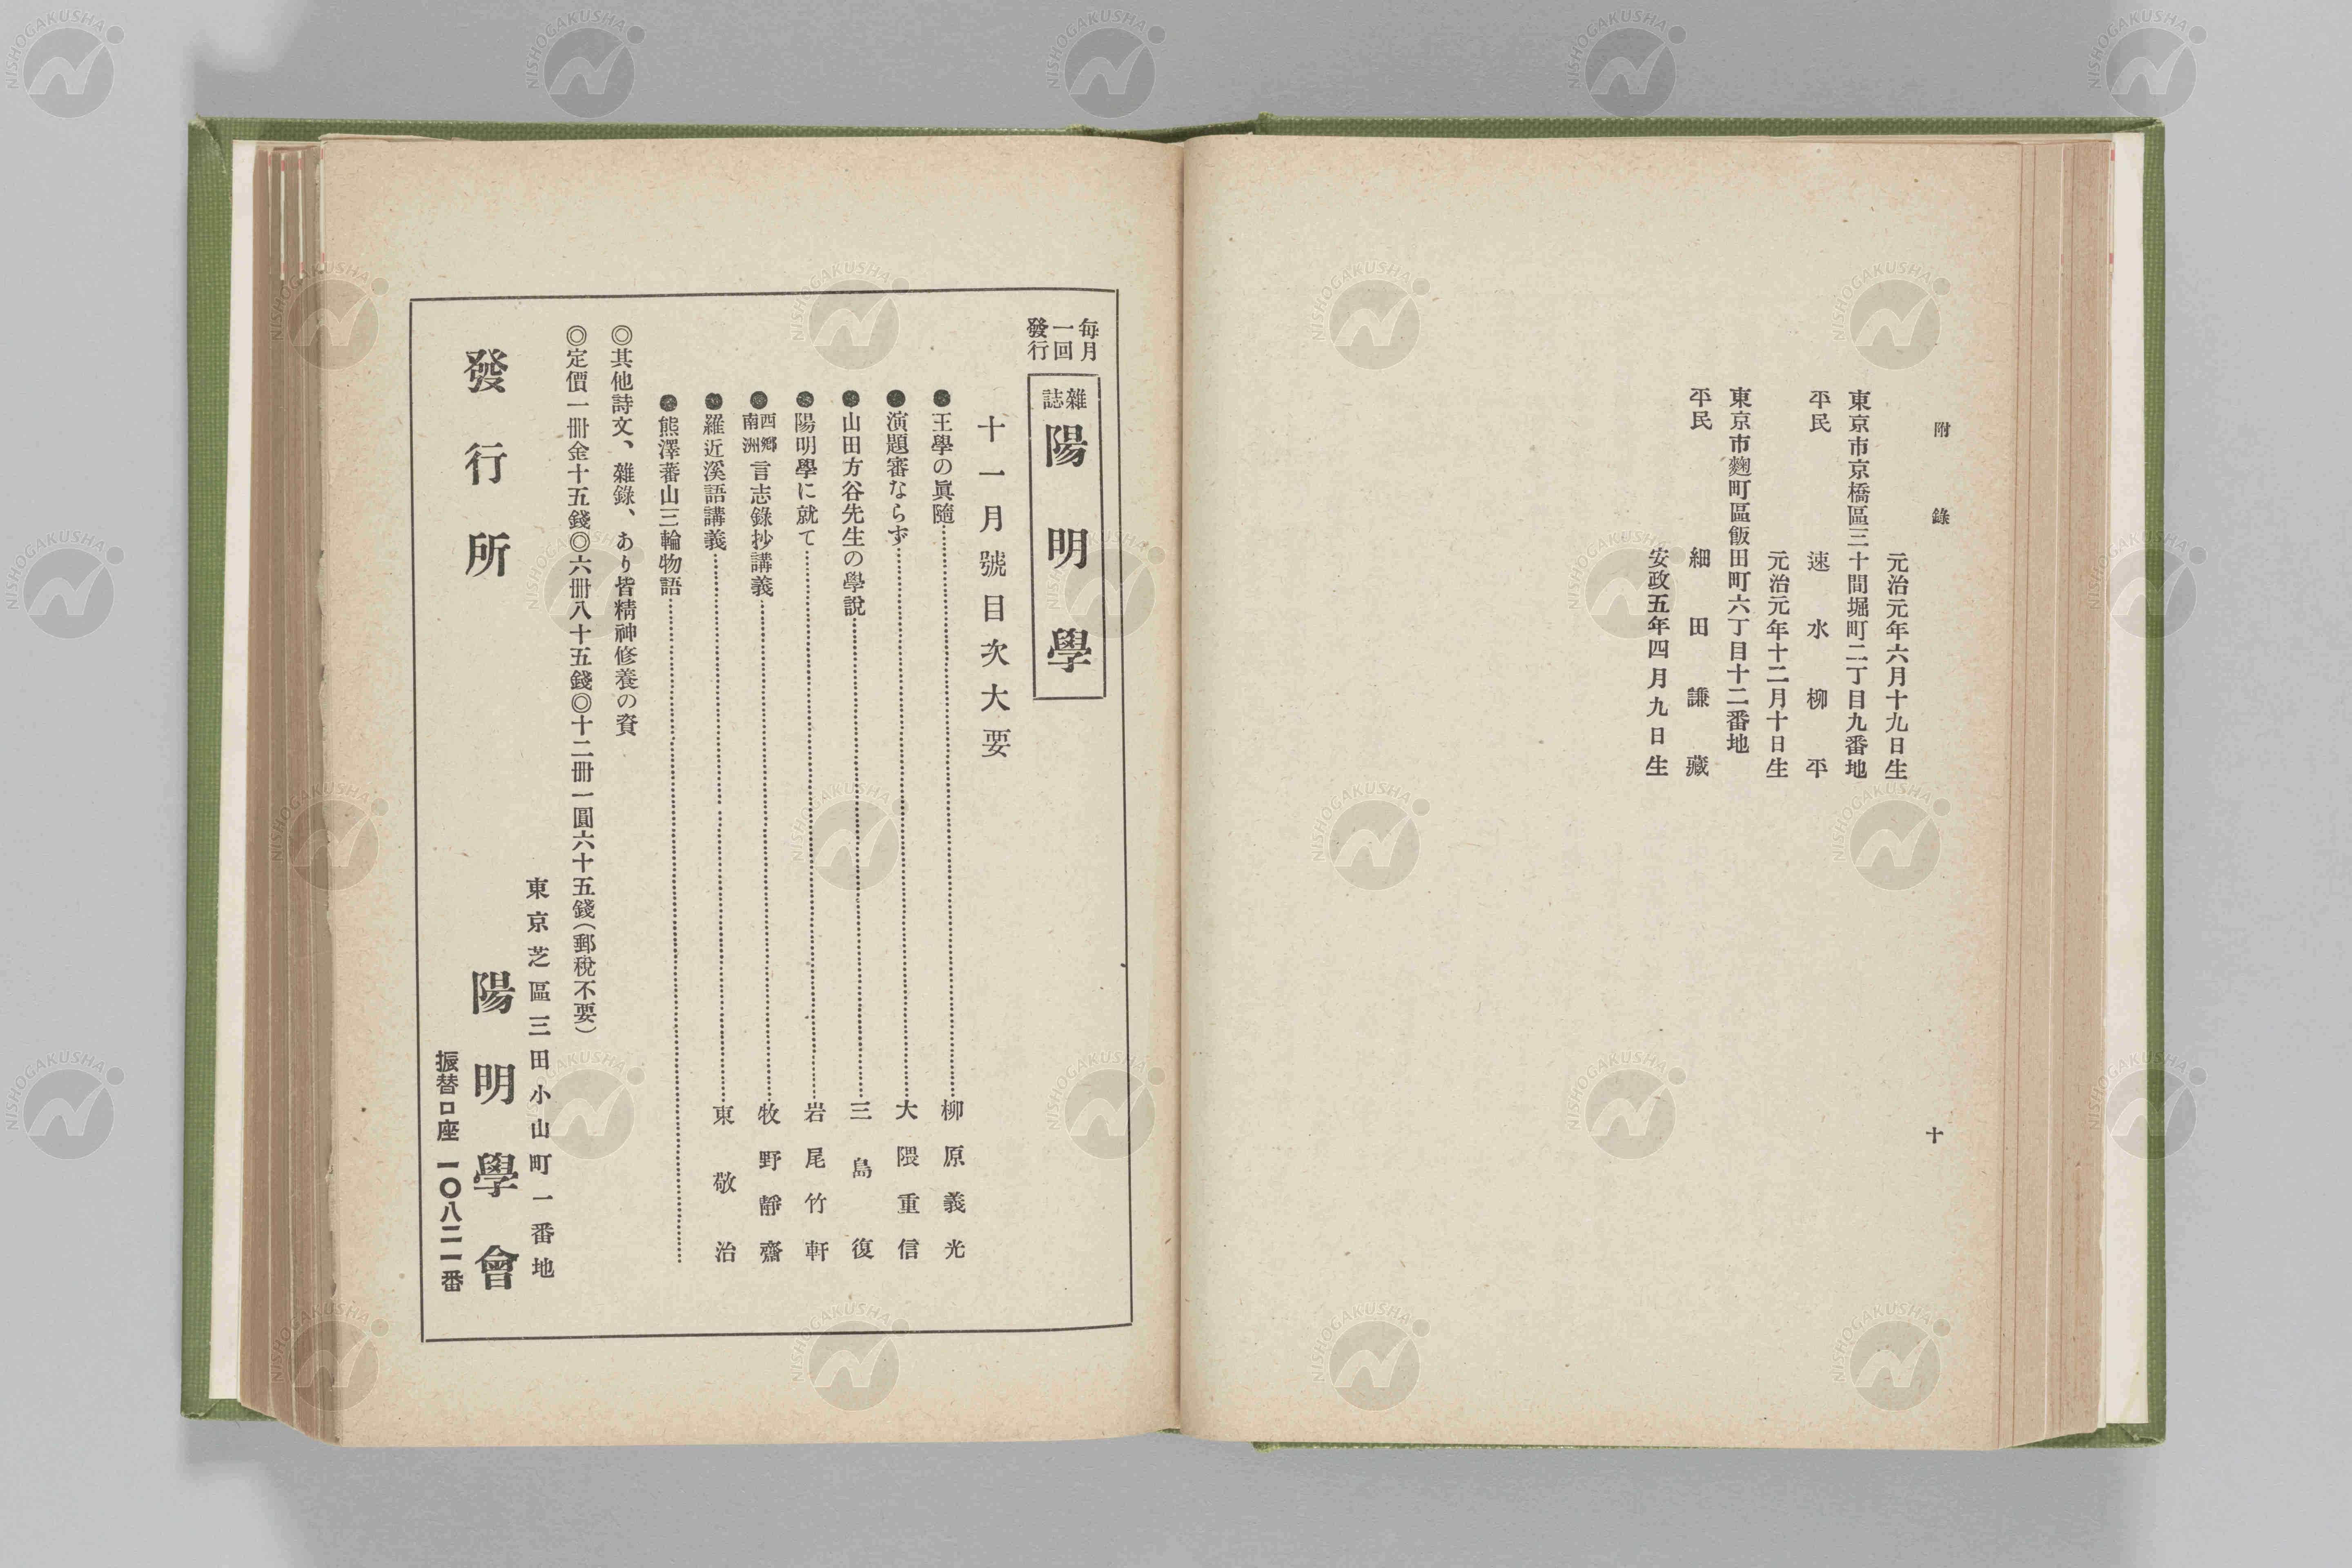 附錄
元治元年六月十九日生
東京市京橋區三十間堀町二丁目九番地
平民 速水柳平
元治元年十二月十日生
東京市麴町區飯田町六丁目十二番地
平民 細田謙藏
安政五年四月九日生
十
每月一回發行
雜誌 陽明學
十一月號目次大要
●王學の眞隨………柳原義光
●演題審ならず………大隈重信
●山田方谷先生の學說………三島復
●陽明學に就て………岩尾竹軒
●西鄉南洲言志錄抄講義………牧野靜齋
●羅近溪語講義………東敬治
●熊澤蕃山三輪物語………
◎其他詩文、雜錄、あり皆精神修養の資
◎定價一冊金十五錢◎六冊八十五錢◎十二冊一圓六十五錢(郵稅不要)
東京芝區三田小山町一番地
發行所 陽明學會
振替口座一〇八二一番
NISHOGAKUSHA